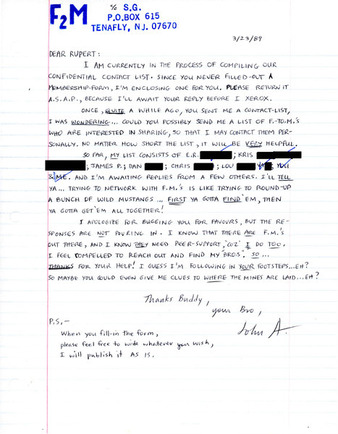 F2M
℅ S.G.
P.O.BOX 615
TENAFLY, NJ. 07670
3/23/89
DEAR RUPERT:
I AM CURRENTLY IN THE PROCESS OF COMPILING OUR
CONFIDENTIAL CONTACT LIST. SINCE YOU NEVER FILLED-OUT A
MEMBERSHIP-FORM, I'M ENCLOSING ONE FOR YOU. PLEASE RETURN IT
A.S.A.P., BECAUSE I'LL AWAIT YOUR REPLY BEFORE I XEROX.
ONCE, QUITE A WHILE AGO, YOU SENT ME A CONTACT-LIST,
I WAS WONDERING... COULD YOU POSSIBLY SEND ME A LIST OF F.-TO-M.'S
WHO ARE INTERESTED IN SHARING, SO THAT I MAY CONTACT THEM PER-
SONALLY. NO MATTER HOW SHORT THE LIST, IT WILL BE VERY HELPFUL.
SO FAR, MY LIST CONSISTS OF E.R. ; KRIS
, JAMES P.; DAN ; CHRIS ; LOU ;
& ME, AND I'M AWAITING REPLIES FROM A FEW OTHERS. I'LL TELL
YA... TRYING TO NETWORK WITH F.M.'S IS LIKE TRYING TO ROUND-UP
A BUNCH OF WILD MUSTANGS... FIRST YA GOTTA FIND 'EM, THEN
YA GOTTA GET 'EM ALL TOGETHER!
I APOLOGIZE FOR BUGGING YOU FOR FAVOURS, BUT THE RE-
SPONSES ARE NOT POURING IN. I KNOW THAT THERE ARE F.M.'S
OUT THERE, AND I KNOW THEY NEED PEER-SUPPORT, 'COZ' I DO TOO.
I FEEL COMPELLED TO REACH OUT AND FIND MY 'BROS'. SO...
THANKS FOR YOUR HELP! I GUESS I'M FOLLOWING IN YOUR FOOTSTEPS...EH?
SO MAYBE YOU COULD EVEN GIVE ME CLUES TO WHERE THE MINES ARE LAID...EH?
Thanks Buddy,
your Bro,
John A.
P.S.—
When you fill-in the form,
please feel free to write whatever you wish,
I will publish it AS IS.